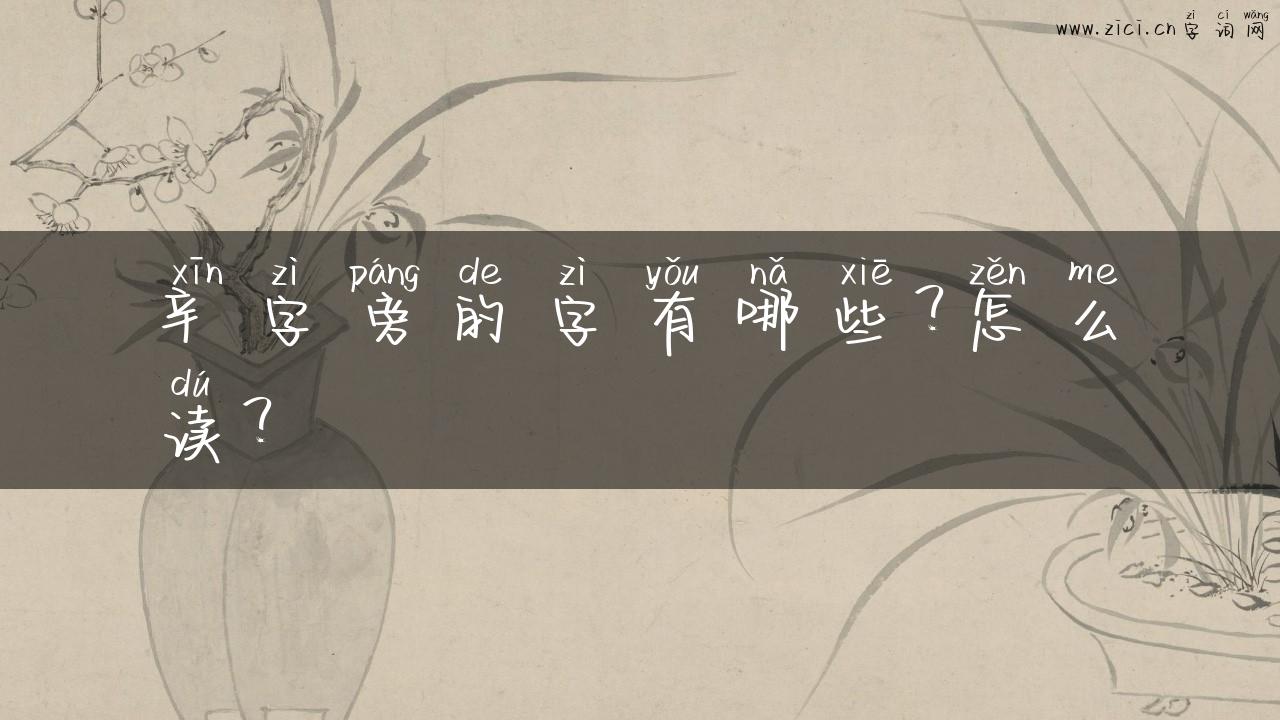 zì cí wǎng
www.zici.cn 字词网
xīn zì páng de zì yǒu nǎ xiē zěn me
辛字旁的字有哪些？怎么
dú
读？